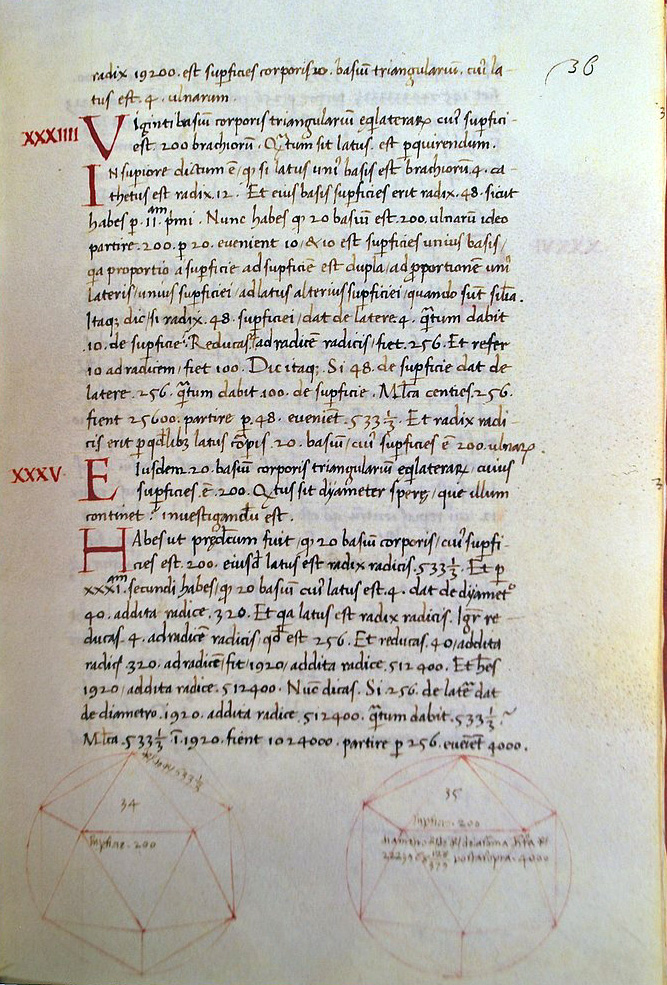 36
radix 19200. est supficies corporis 20. basiū triangulariū. cui᾽ la-
tus est. 4. ulnarum.
XXXIIII
Viginti basiū corporis triangulariū eqlaterarꝝ cui᾽ supfici-
est. 200 brachiorū. Qtum sit latus. est pquirendum.
IN supiore dictum ē, ꝙ si latus uni᾽ basis est brachiorū 4. ca-
thetus est radix. 12. Et eius basis supficies erit radix. 48. sicut
habes p. 11.am pmi. Nunc habes ꝙ 20 basiū est. 200. ulnarū ideo
partire. 200. p 20. evenient 10/ & 10 est supficies unius basis/
qa proportio a supficie ad supficiē est dupla/ ad pportionem uni᾽
lateris/ unius supficiei/ ad latus alterius supficiei/ quando sūt silia.
Itaq; dic/ si radix. 48. supficiei/ dat de latere. 4. qtum dabit
.10. de supficie. Reducas ad radicē radicis/ fiet. 256. Et refer
10 ad radicem/ fiet 100. Dic itaq; Si 48. de supficie dat de
latere. 256. qtum dabit 100. de supficie. Mlca centies. 256.
fient 25600. partire p. 48. eveniēt. 533 1/3. Et radix radi-
cis erit p qdlibꝫ latus corpis. 20. basiū/ cui᾽ supficies ē 200. ulnarꝝ.
XXXV
Eiusdem 20. basiū corporis triangulariū eqlaterarꝝ cuius
supficies. ē. 200. Qtus sit dyameter spere/ que illum
continet: investigandū est.
HAbes ut predictum fuit/ ꝙ 20 basiū corporis/ cui᾽ supfi-
cies est. 200. eiusd latus est radix radicis. 533 1/3. Et p
xxxi.am secundi habes/ ꝙ 20 basiū cui᾽ latus est. 4. dat de dyamet°
40. addita radice. 320. Et qa latus est radix radicis. Igr re-
ducas. 4. ad radicē radicis/ qd est 256. Et reducas. 40/ addita
radicē 320. ad radicē/ fit/ 1920/ addita radice. 512400. Et hēs
1920/ addita radice. 512400. Nūc dicas. Si. 256. de latē dat
de diametro. 1920. addita radice 512400. qtum dabit. 533 1/3.
Mlca. 533 1/3 ī. 1920. fient 1024000. partire p 256. eveniēt 4000.
533 1/3
34
supficies. 200
35
supficies. 200
4000